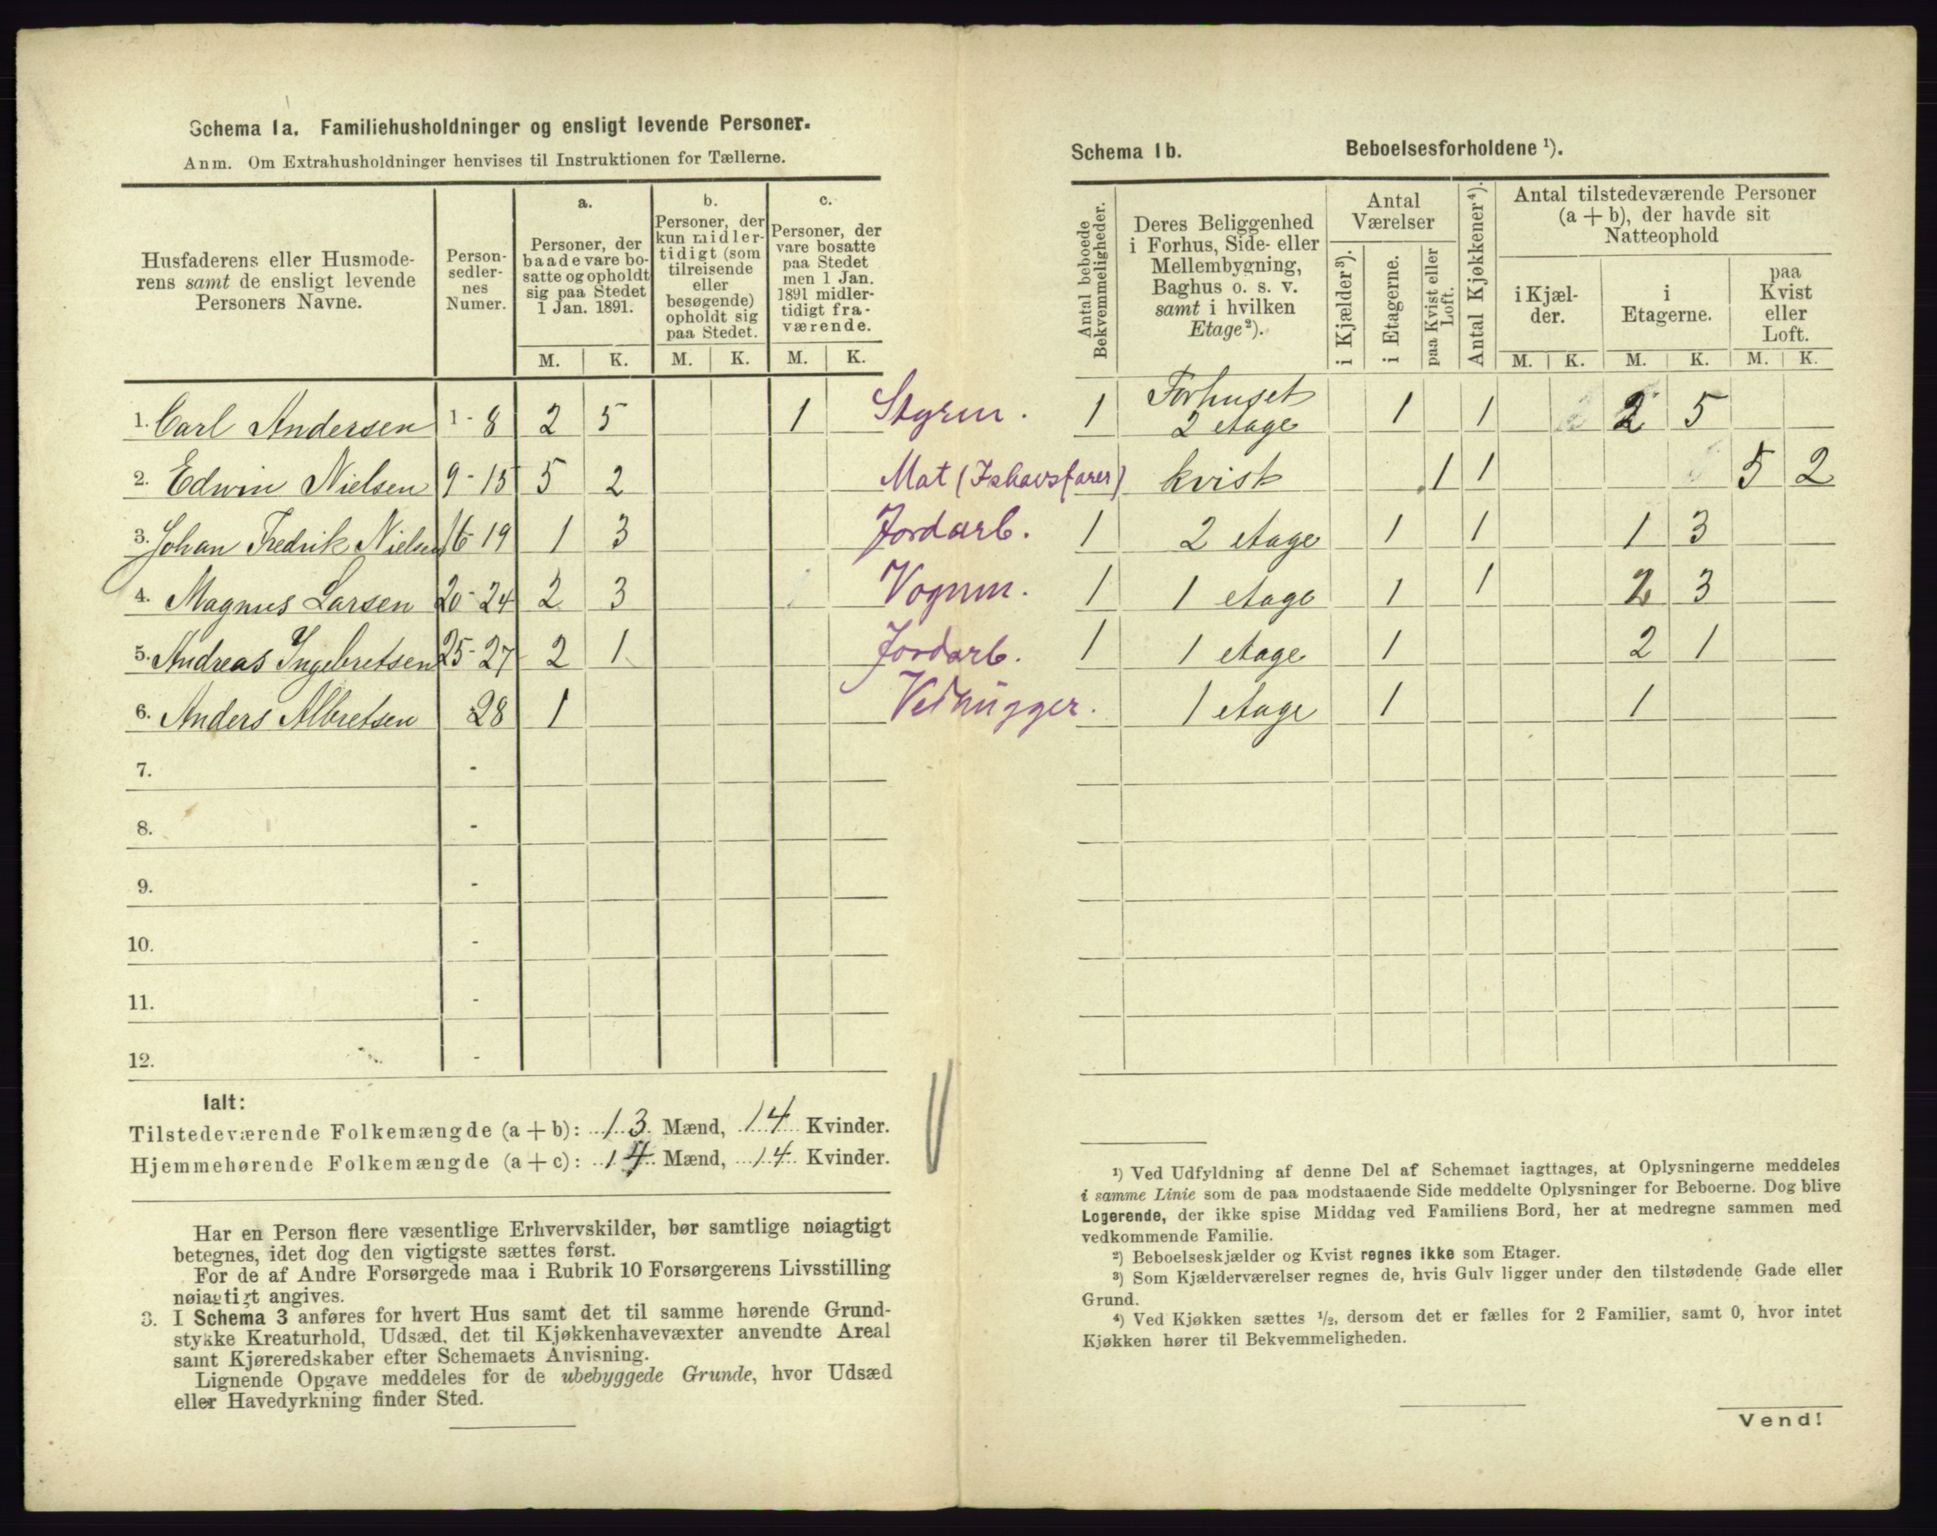 Schema 1a. Familiehusholdninger og ensligt levende Personer.
Anm. Om Extrahusholdninger henvises til Instruktionen for Tællerne.
Husfaderens eller Husmode-
rens samt de ensligt levende
Personers Navne.
Person-
sedler-
nes
Numer.
a.
Personer, der
baade vare bo-
satte og opholdt
sig paa Stedet
1 Jan. 1891.
b.
Personer, der
kun midler-
tidigt (som
tilreisende
eller
besøgende)
opholdt sig
paa Stedet.
c.
Personer, der
vare bosatte
paa Stedet
men 1 Jan.
1891 midler-
tidigt fra-
værende.
M. K. M. K. M. K.
1. Carl Andersen 1 - 8 2 5 1 Styrm.
2. Edwin Nielsen 9 - 15 5 2 Mat (Ishavsfarer)
3. Johan Fredrik Nielsen 16 - 19 1 3 Jordarb.
4. Magnus Larsen 20 - 24 2 3 Vognm.
5. Andreas Ingebretsen 25 - 27 2 1 Jordarb.
6. Anders Albretsen 28 1 Vedhugger.
7. -
8. -
9. -
10. -
11. -
12. -
Ialt:
Tilstedeværende Folkemængde (a + b): 13 Mænd, 14 Kvinder.
Hjemmehørende Folkemængde (a + c): 14 Mænd, 14 Kvinder.
Har en Person flere væsentlige Erhvervskilder, bør samtlige nøiagtigt
betegnes, idet dog den vigtigste sættes først.
For de af Andre Forsørgede maa i Rubrik 10 Forsørgerens Livsstilling
nøiagtigt angives.
3. I Schema 3 anføres for hvert Hus samt det til samme hørende Grund-
stykke Kreaturhold, Udsæd, det til Kjøkkenhavevæxter anvendte Areal
samt Kjøreredskaber efter Schemaets Anvisning.
Lignende Opgave meddeles for de ubebyggede Grunde, hvor Udsæd
eller Havedyrkning finder Sted.
Schema 1b. Beboelsesforholdene ¹).
Antal beboede
Bekvemmeligheder.
Deres Beliggenhed
i Forhus, Side- eller
Mellembygning,
Baghus o. s. v.
samt i hvilken
Etage²).
Antal
Værelser
i Kjælder³).
i Etagerne.
paa Kvist eller
Loft.
Antal Kjøkkener⁴).
Antal tilstedeværende Personer
(a + b), der havde sit
Natteophold
i Kjæl-
der.
i
Etagerne.
paa
Kvist
eller
Loft.
M. K. M. K. M. K.
1 Forhuset
2 etage 1 1 2 5
kvist 1 1 5 2
1 2 etage 1 1 1 3
1 1 etage 1 1 2 3
1 1 etage 1 2 1
1 etage 1 1
¹) Ved Udfyldning af denne Del af Schemaet iagttages, at Oplysningerne meddeles
i samme Linie som de paa modstaaende Side meddelte Oplysninger for Beboerne. Dog blive
Logerende, der ikke spise Middag ved Familiens Bord, her at medregne sammen med
vedkommende Familie.
²) Beboelseskjælder og Kvist regnes ikke som Etager.
³) Som Kjælderværelser regnes de, hvis Gulv ligger under den tilstødende Gade eller
Grund.
⁴) Ved Kjøkken sættes ½, dersom det er fælles for 2 Familier, samt 0, hvor intet
Kjøkken hører til Bekvemmeligheden.
Vend!